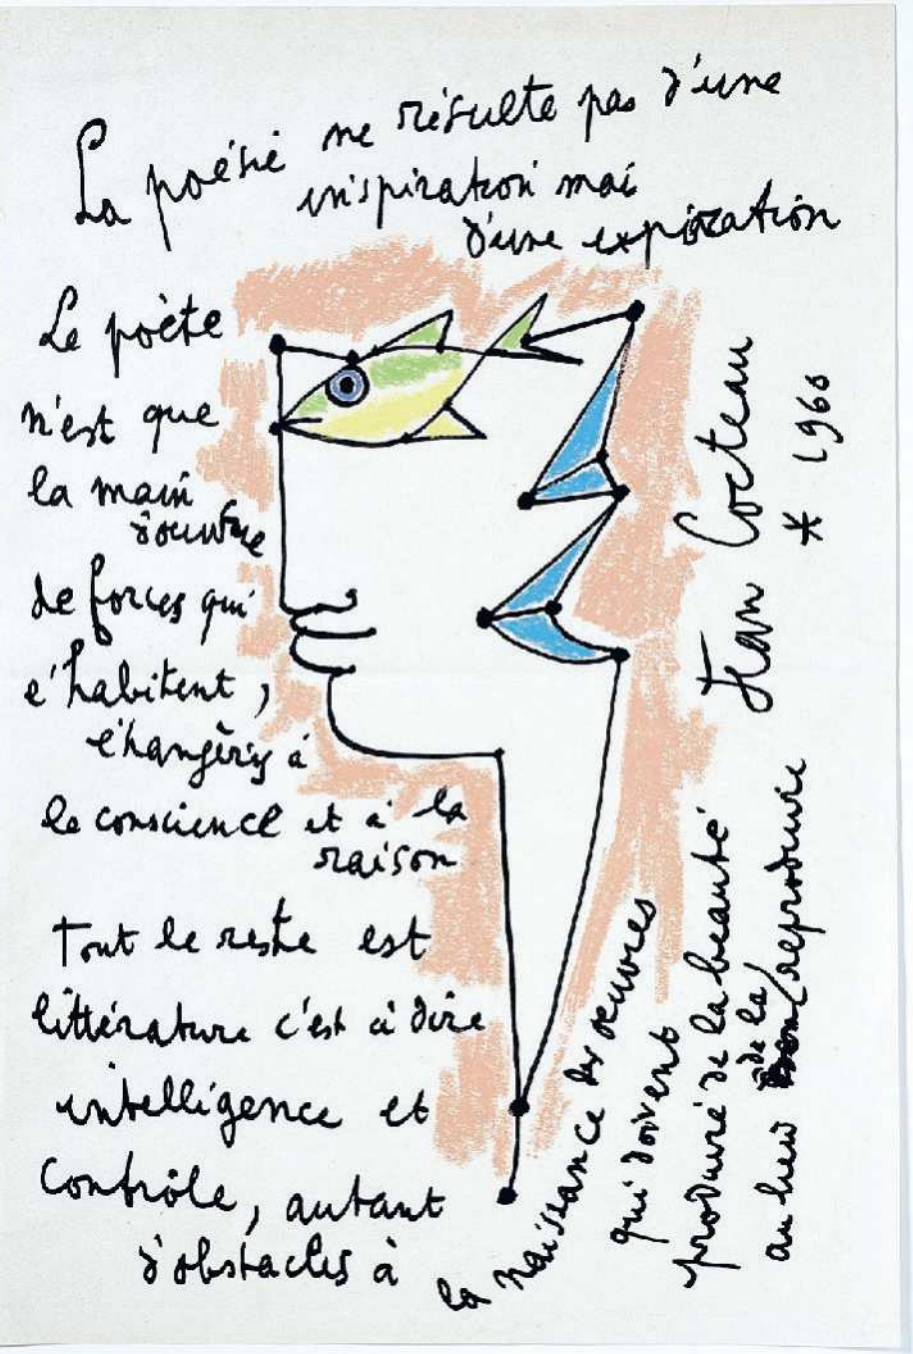 La poésie ne résulte pas d'une
inspiration mai
d'une expiration
Le poète
n'est que
la main
d'ouvre
de forces qui
l'habitent,
étrangères à
la conscience et à la
raison
Tout le reste est
littérature c'est à dire
intelligence et
contrôle, autant
d'obstacles à
la naissance des œuvres
qui doivent
produire de la beauté
au lieu de la reproduire
Jean Cocteau
* 1960